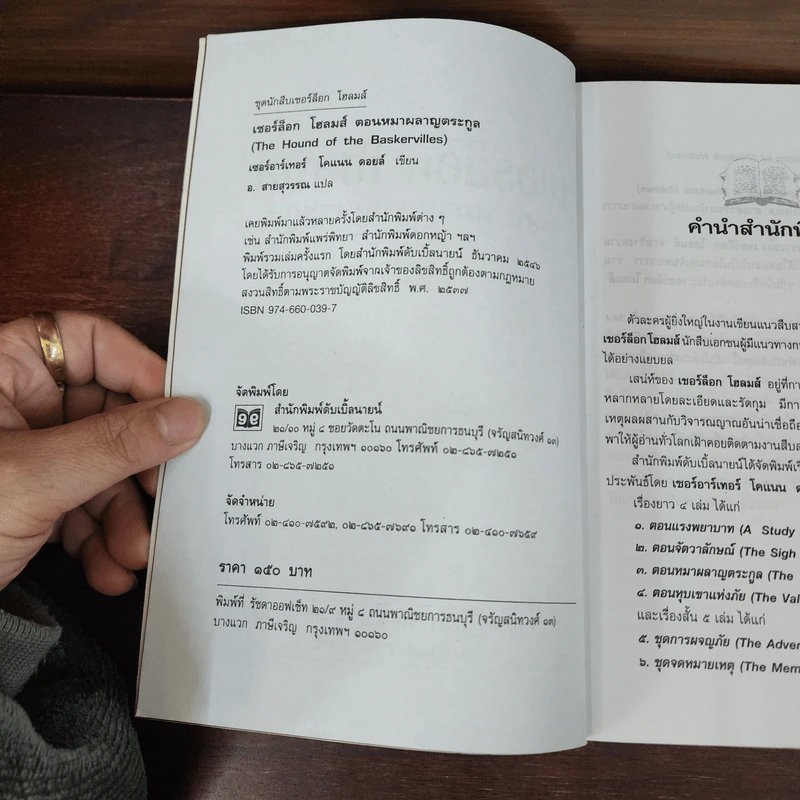 ชุดนักสืบเชอร์ล็อก โฮลมส์
เชอร์ล็อก โฮลมส์ ตอนหมาผลาญตระกูล
(The Hound of the Baskervilles)
เซอร์อาร์เทอร์ โคแนน ดอยล์ เขียน
อ. สายสุวรรณ แปล
เคยพิมพ์มาแล้วหลายครั้งโดยสำนักพิมพ์ต่าง ๆ
เช่น สำนักพิมพ์แพร่พิทยา สำนักพิมพ์ดอกหญ้า ฯลฯ
พิมพ์รวมเล่มครั้งแรก โดยสำนักพิมพ์ดับเบิ้ลนายน์ ธันวาคม ๒๕๔๖
โดยได้รับการอนุญาตจัดพิมพ์จากเจ้าของลิขสิทธิ์ถูกต้องตามกฎหมาย
สงวนสิทธิ์ตามพระราชบัญญัติลิขสิทธิ์ พ.ศ. ๒๕๓๗
ISBN 974-660-039-7
จัดพิมพ์โดย
สำนักพิมพ์ดับเบิ้ลนายน์
๒๑/๑๐ หมู่ ๘ ซอยวัดตะโน ถนนพาณิชยการธนบุรี (จรัญสนิทวงศ์ ๑๓)
บางแวก ภาษีเจริญ กรุงเทพฯ ๑๐๑๖๐ โทรศัพท์ ๐๒-๘๖๕-๗๒๕๑
โทรสาร ๐๒-๘๖๕-๗๒๕๑
จัดจำหน่าย
โทรศัพท์ ๐๒-๔๑๐-๗๕๙๒, ๐๒-๘๖๕-๗๖๙๑ โทรสาร ๐๒-๔๑๐-๗๖๕๙
ราคา ๑๕๐ บาท
พิมพ์ที่ รัชดาออฟเซ็ท ๒๑/๙ หมู่ ๘ ถนนพาณิชยการธนบุรี (จรัญสนิทวงศ์ ๑๓)
บางแวก ภาษีเจริญ กรุงเทพฯ ๑๐๑๖๐
คำนำสำนักพิ
ตัวละครผู้ยิ่งใหญ่ในงานเขียนแนวสืบส
เชอร์ล็อก โฮลมส์ นักสืบเอกชนผู้มีแนวทางก
ได้อย่างแยบยล
เสน่ห์ของ เชอร์ล็อก โฮลมส์ อยู่ที่กา
หลากหลายโดยละเอียดและรัดกุม มีกา
เหตุผลผสานกับวิจารณญาณอันน่าเชื่อถือ
พาให้ผู้อ่านทั่วโลกเฝ้าคอยติดตามงานสืบส
สำนักพิมพ์ดับเบิ้ลนายน์ได้จัดพิมพ์เรื
ประพันธ์โดย เซอร์อาร์เทอร์ โคแนน ด
เรื่องยาว ๔ เล่ม ได้แก่
๑. ตอนแรงพยาบาท (A Study
๒. ตอนจัตวาลักษณ์ (The Sigh
๓. ตอนหมาผลาญตระกูล (The
๔. ตอนหุบเขาแห่งภัย (The Val
และเรื่องสั้น ๕ เล่ม ได้แก่
๕. ชุดการผจญภัย (The Adver
๖. ชุดจดหมายเหตุ (The Mem